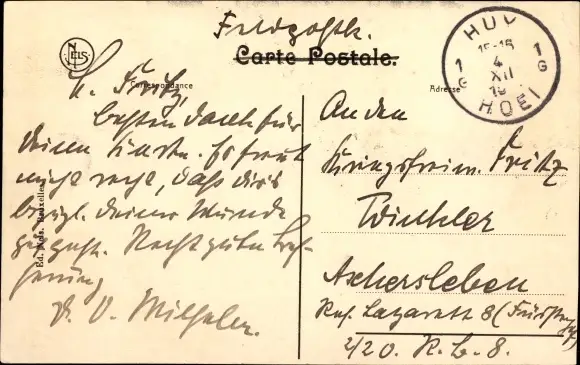 Feldpostk.
Carte Postale.
NELS
Correspondance
Adresse
HUY
15-16
1 4 1
G XII G
19
HOEI
L. Fritz,
besten Dank für
deine Karte. Es freut
mich sehr, daß dirs
bezgl. deiner Wunde
gut geht. Recht gute Bes-
serung
D. O. Wilhelm.
Ed. Nels, Bruxelles
An den
Kriegsfreiw. Fritz
Winkler
Aschersleben
Res. Lazarett 8
2/20. R. L. 8.